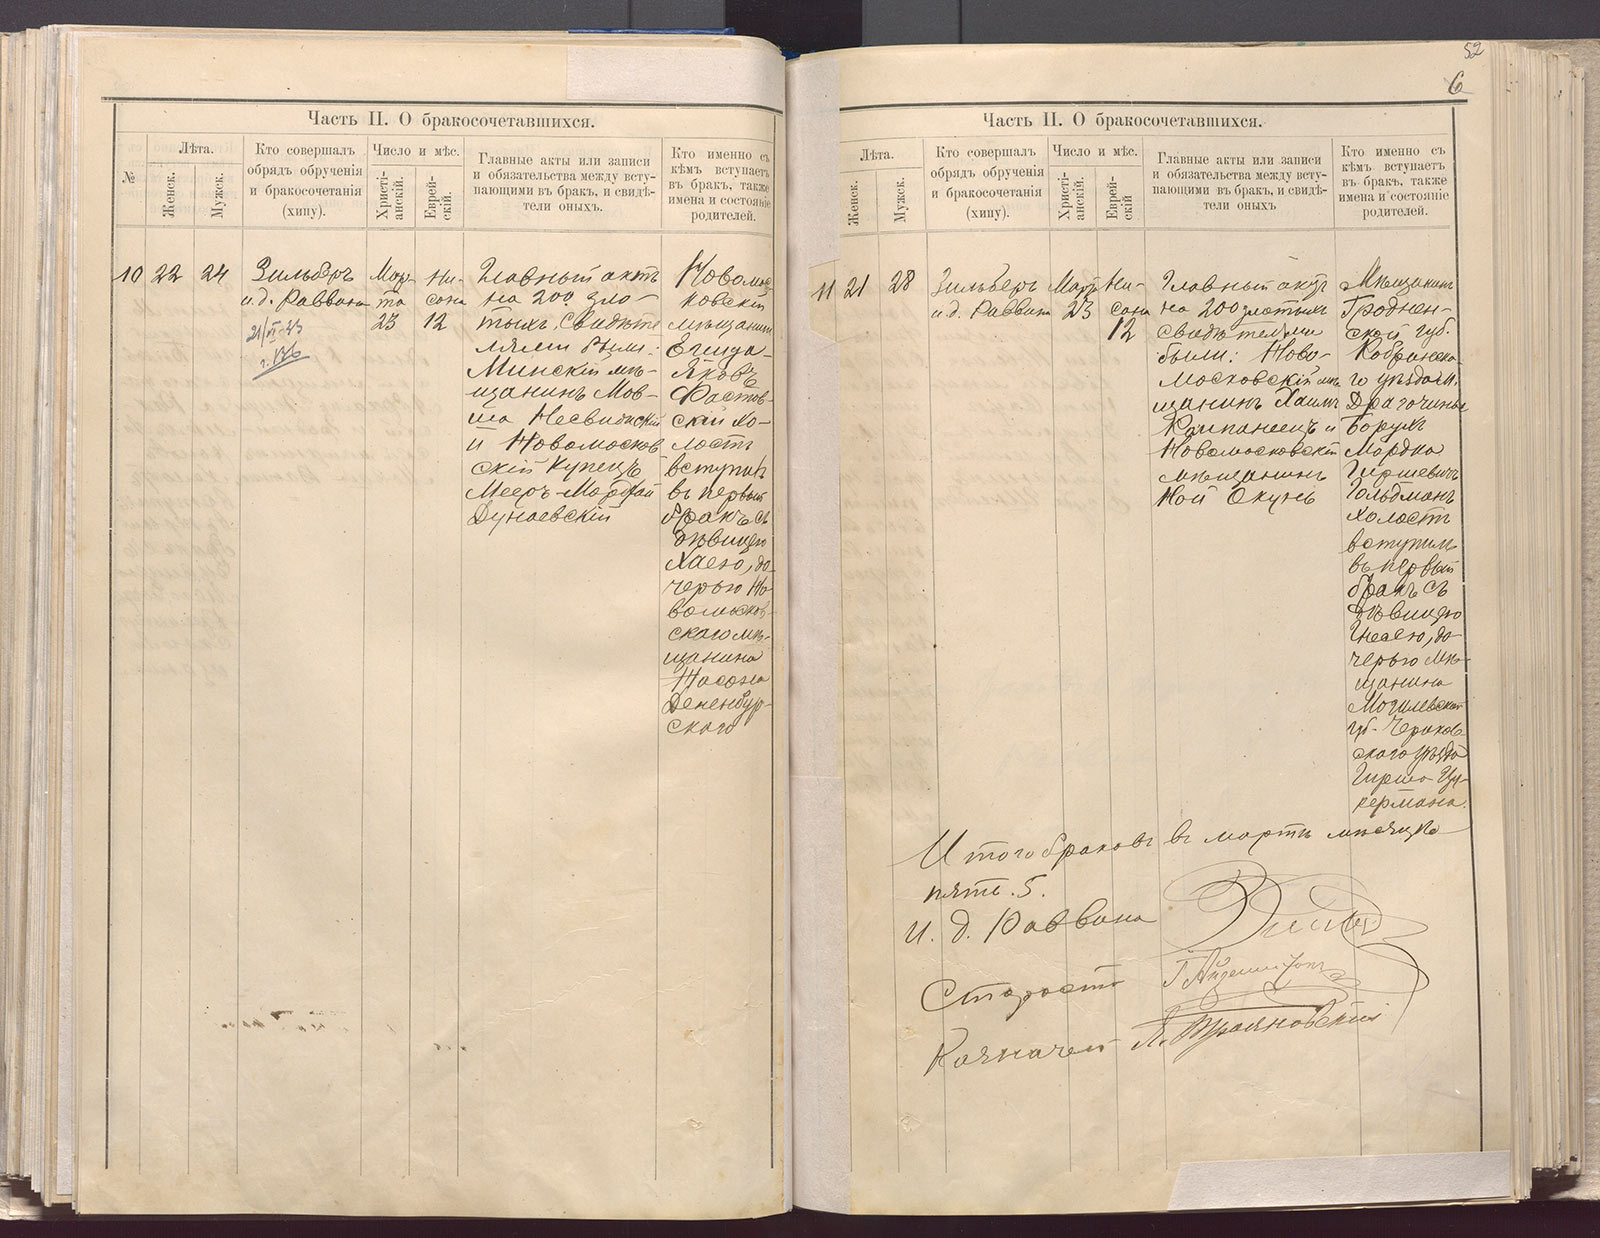 Часть II. О бракосочетавшихся.
№
Лѣта.
Женск.
Мужск.
Кто совершалъ
обрядъ обрученія
и бракосочетанія
(хипу).
Число и мѣс.
Христі-
анскій.
Еврей-
скій.
Главные акты или записи
и обязательства между всту-
пающими въ бракъ, и свидѣ-
тели оныхъ.
Кто именно съ
кѣмъ вступаетъ
въ бракъ, также
имена и состояніе
родителей.
10
22
24
Зильберъ
и.д. Раввина
Мар-
та
23
Ни-
сона
12
Главный актъ
на 200 зло-
тыхъ. Свидѣте
лями были:
Минскій мѣ-
щанинъ Мов-
ша Несвижскій
и Новомосков
скій купецъ
Мееръ-Мордхай
Дунаевскій
Новомос-
ковскій
мѣщанинъ
Яковъ
Фастов-
скій хо-
лостъ
вступилъ
въ первый
бракъ съ
дѣвицею
Хаею, до-
черью Но-
вомосков-
скаго мѣ-
щанина
Насона
Дененбур-
скаго
52
6
Часть II. О бракосочетавшихся.
Лѣта.
Женск.
Мужск.
Кто совершалъ
обрядъ обрученія
и бракосочетанія
(хипу).
Число и мѣс.
Христі-
анскій.
Еврей-
скій
Главные акты или записи
и обязательства между всту-
пающими въ бракъ, и свидѣ-
тели оныхъ
Кто именно съ
кѣмъ вступаетъ
въ бракъ, также
имена и состояніе
родителей.
11
21
28
Зильберъ
и.д. Раввина
Март
23
Ни-
сона
12
Главный актъ
на 200 златыхъ
свидѣтелями
были: Ново-
московскій мѣ
щанинъ Хаимъ
Компанеецъ и
Новомосковскій
мѣщанинъ
Ной Окунь
Мѣщанинъ
Гроднен-
ской губ.
Кобринска
го уѣзда м.
Драгочинъ
Борухъ
Мордко
Гиршевичъ
Гольдманъ
холостъ
вступилъ
въ первый
бракъ съ
дѣвицею
до-
черью мѣ-
щанина
Могилевской
губ. Чериков
скаго уѣзда
Гирша Цу-
кермана.
Итого браковъ въ мартѣ мѣсяцѣ
пять. 5.
И. д. Раввина
Староста
Казначей Я. Трояновскій